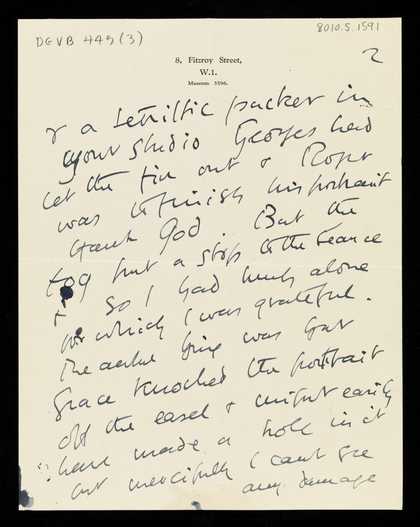 DGVB 445 (3)
8010.5.1591
2
8, Fitzroy Street,
W.1.
Museum 3596.
& a terrific pucker in
your studio Georges had
let the fire out & Roger
was to finish his portrait
thank God. But the
fog put a stop to the seance
& so I had lunch alone
for which I was grateful.
The awful thing was that
Grace knocked the portrait
off the easel & might easily
have made a hole in it
but mercifully I cant see
any damage